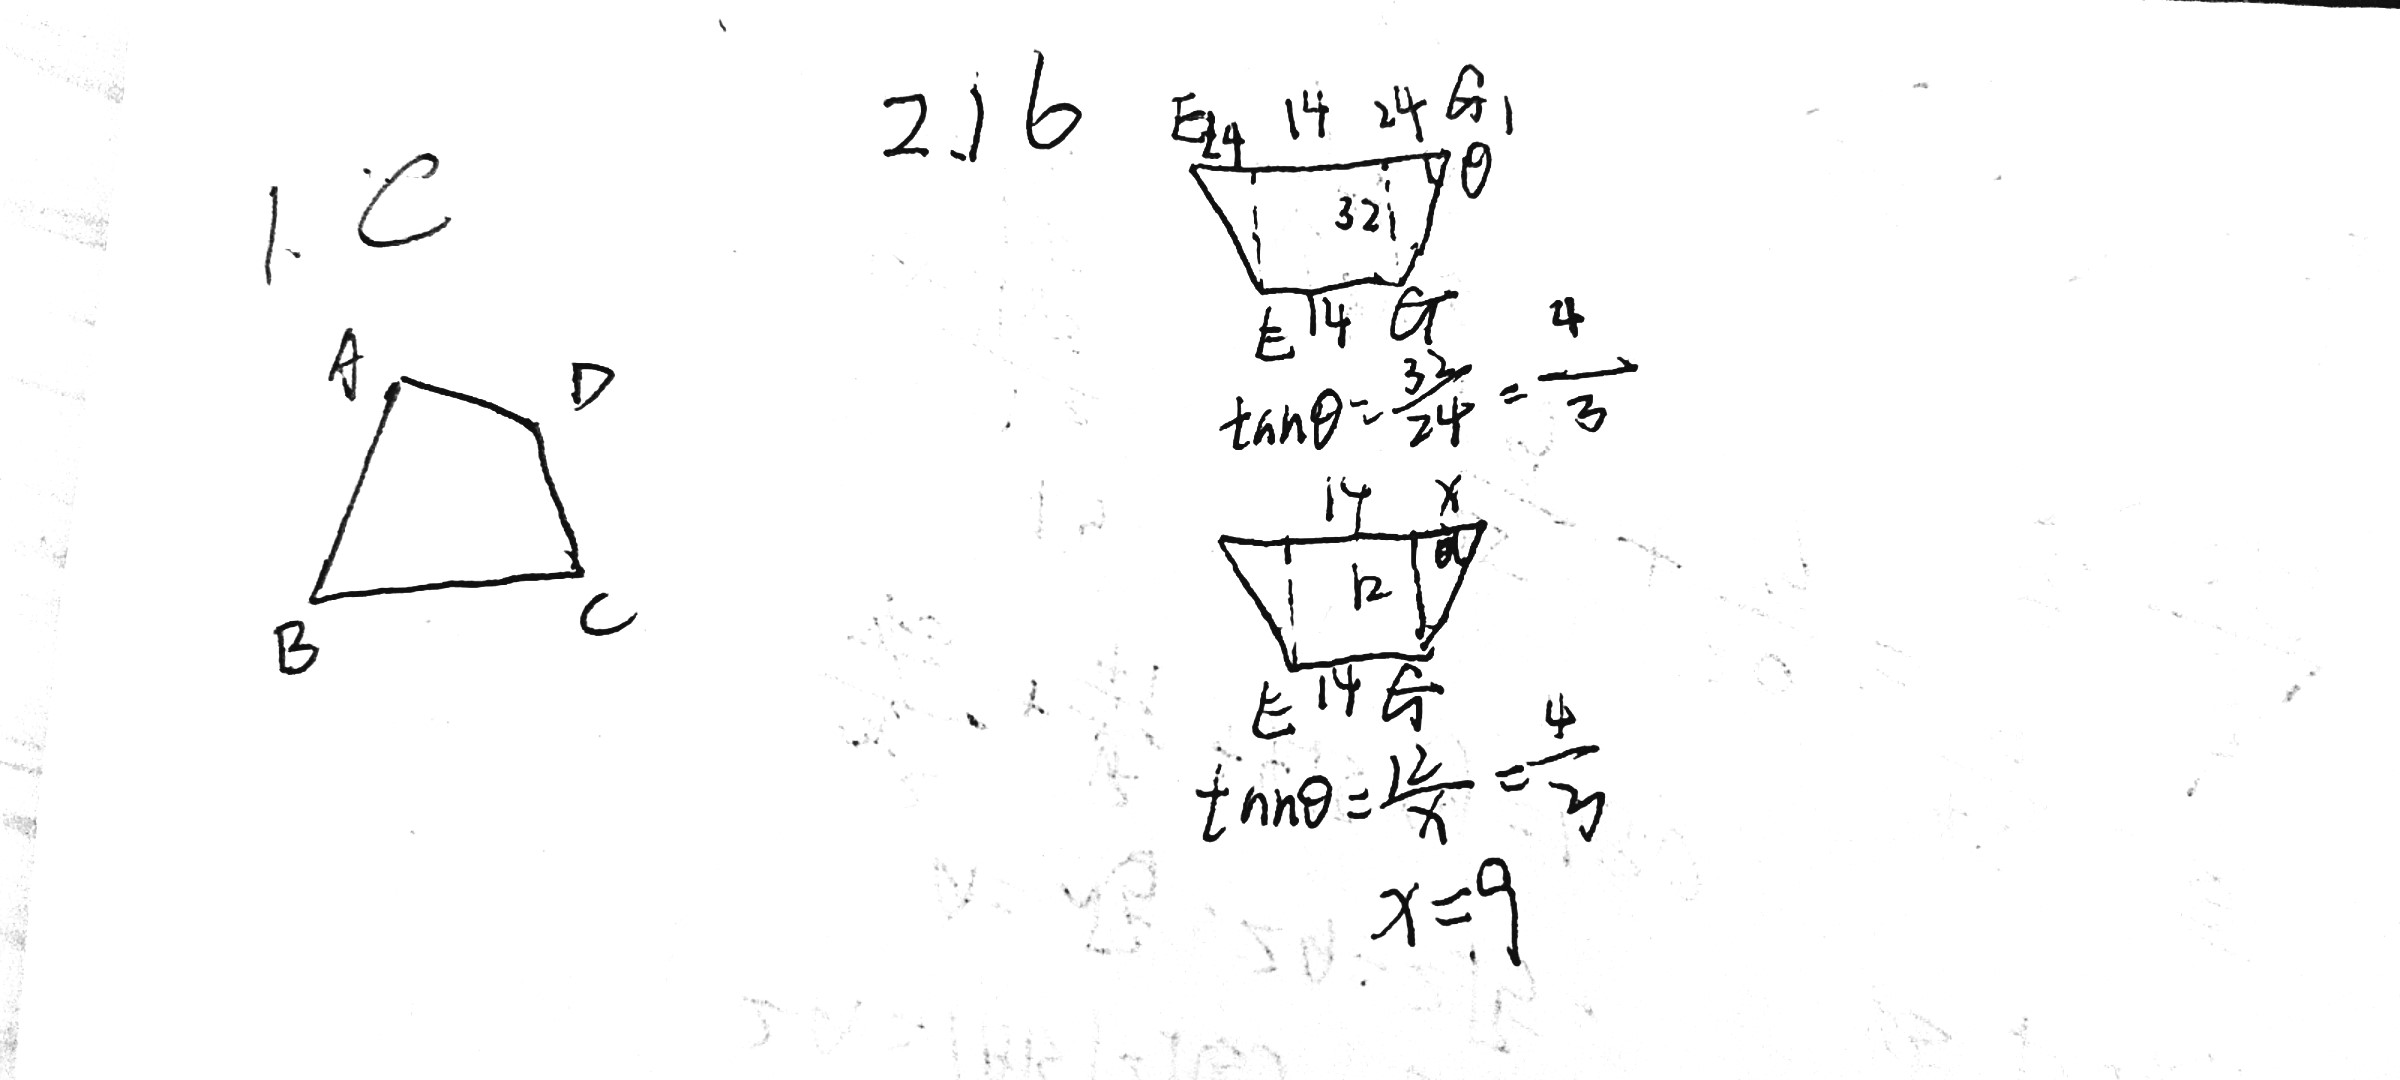 1. C
A D
B C
2. 16
E 24 14 24 G1
θ
32
E 14 G
tanθ = 32/24 = 4/3
14 x
θ
12
E 14 G
tanθ = 12/x = 4/3
x=9